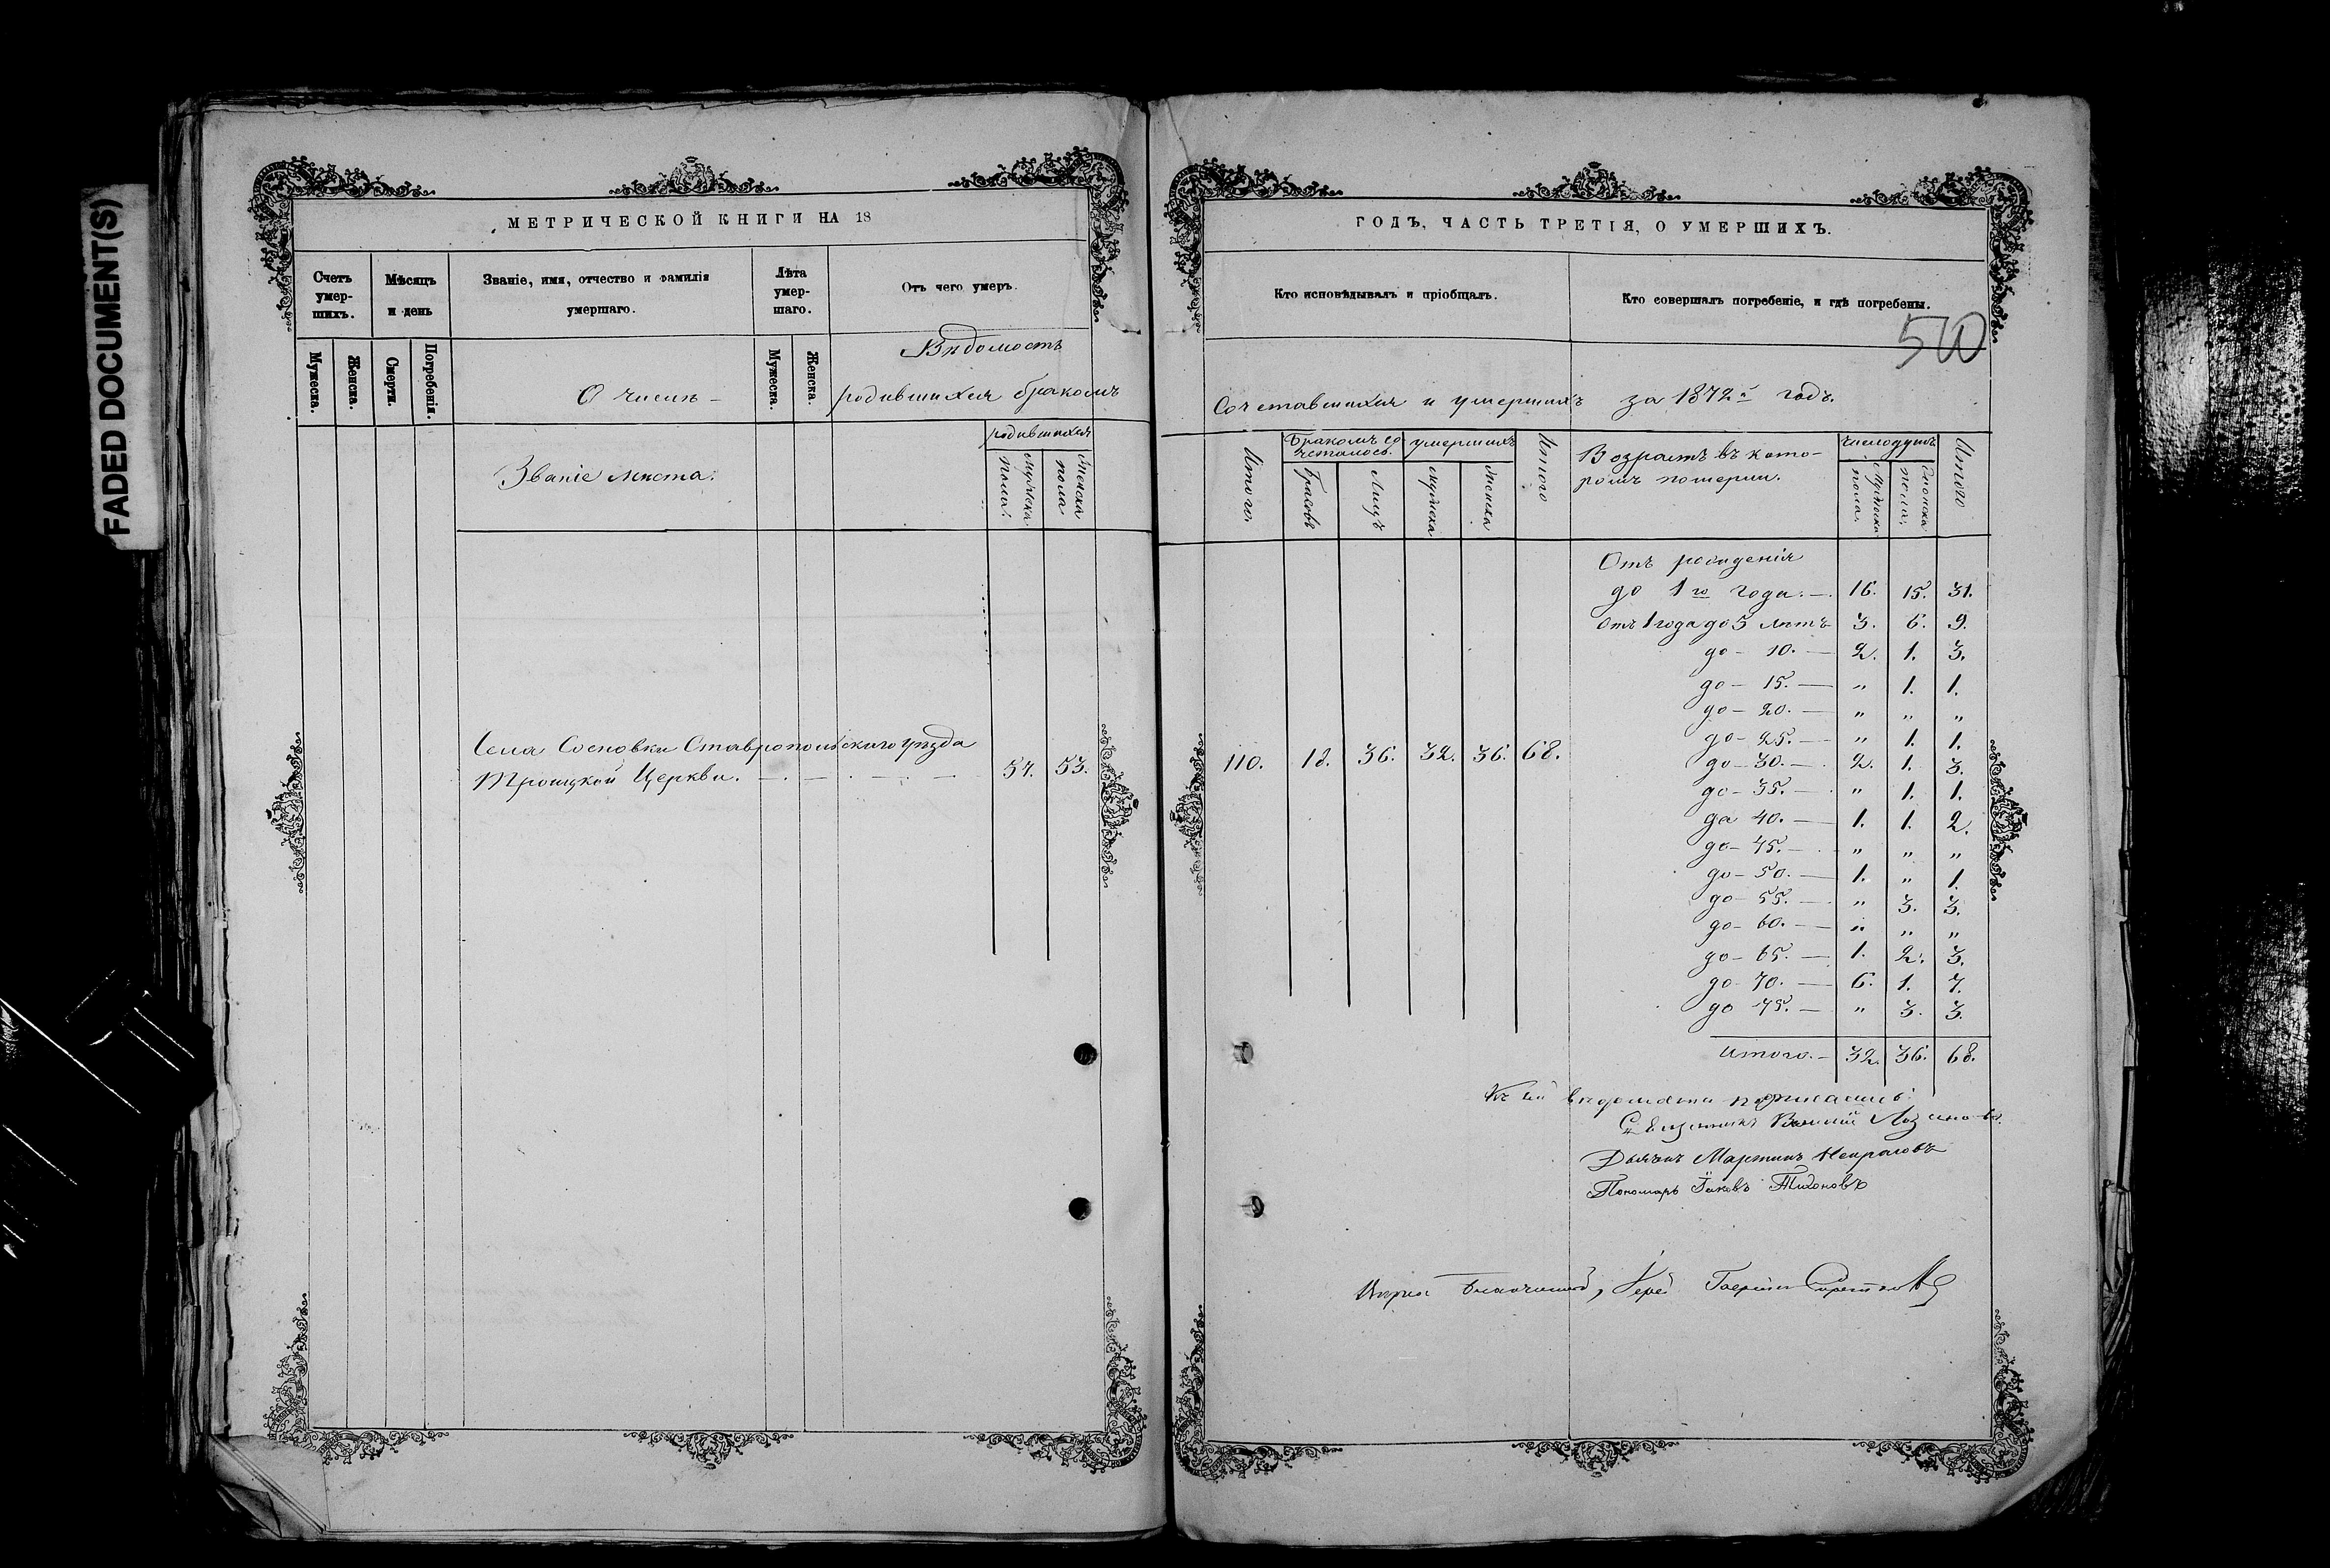 FADED DOCUMENT(S)
МЕТРИЧЕСКОЙ КНИГИ НА 18
Счетъ умер-шихъ.
Мѣсяцъ и день
Званіе, имя, отчество и фамилія умершаго.
Лѣта умер-шаго.
Отъ чего умеръ.
Мужеска.
Женска.
Смерти.
Погребенія.
Мужеска.
Женска.
Вѣдомость
О числѣ – родившихся бракомъ
родившихся
Званіе мѣста.
Мужеска пола.
Женска пола
Села Сосновки Ставропольскаго уѣзда
Троицкой Церкви. 57. 53.
ГОДЪ, ЧАСТЬ ТРЕТІЯ, О УМЕРШИХЪ.
Кто исповѣдывалъ и пріобщалъ.
Кто совершалъ погребеніе, и гдѣ погребены.
500
Сочетавшихся и умершихъ за 1872й годъ.
Итого.
Бракомъ со-четалось.
Браковъ
Лицъ
умершихъ
мужеска
женска
Итого
Возрастъ въ кото-
ромъ померли.
число душъ
Мужеска пола.
Женска пола.
Итого
110. 18. 36. 32. 36. 68.
Отъ рожденія
до 1го года. — 16. 15. 31.
Отъ 1 года до 5 лѣтъ 3. 6. 9.
до – 10. — 2. 1. 3.
до – 15. — „ 1. 1.
до – 20. — „ „ „
до – 25. — „ 1. 1.
до – 30. — 2. 1. 3.
до – 35. — „ 1. 1.
до 40. — 1. 1. 2.
до – 45. — „ „ „
до – 50. — 1. „ 1.
до – 55. — „ 3. 3.
до – 60. — „ „ „
до – 65. — 1. 2. 3.
до – 70. — 6. 1. 7.
до 75. — „ 3. 3.
Итого. – 32. 36. 68.
Къ сей вѣдомости подписались:
Священникъ
Дьячекъ Мартинъ Некрасовъ
Пономарь Іаковъ Тихоновъ
Благочинный, Іерей